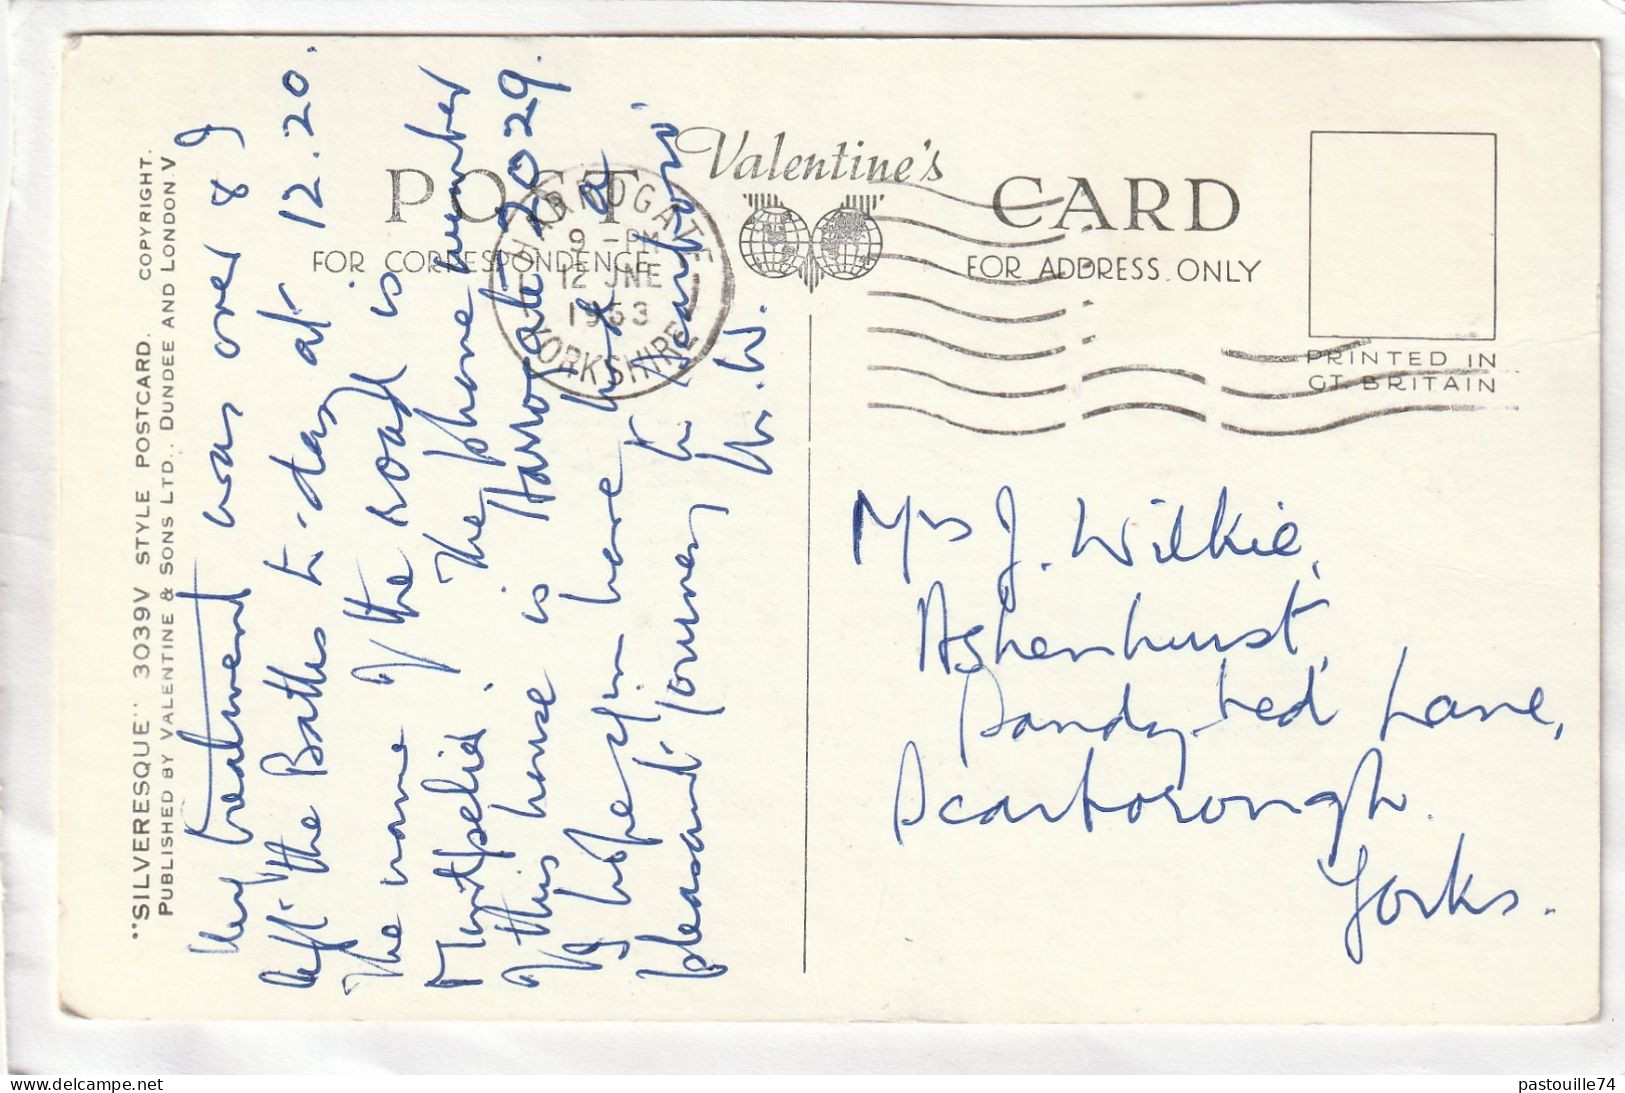 "SILVERESQUE" 3039V STYLE POSTCARD. COPYRIGHT.
PUBLISHED BY VALENTINE & SONS LTD., DUNDEE AND LONDON. V
My treatment was over & I
left the Baths to-day at 12.20.
The name of the road is
Montpelier. The phone number
of this house is Harrogate 2029.
I hope you have had a
pleasant journey to Scarboro'.
W.W.
POST
FOR CORRESPONDENCE
Valentine's
CARD
FOR ADDRESS ONLY
HARROGATE
9 - PM
12 JNE
1953
YORKSHIRE
PRINTED IN
GT. BRITAIN
Mrs J. Wilkie,
Ashenhurst,
Sandybed Lane,
Scarborough.
Yorks.
pastouille74
www.delcampe.net